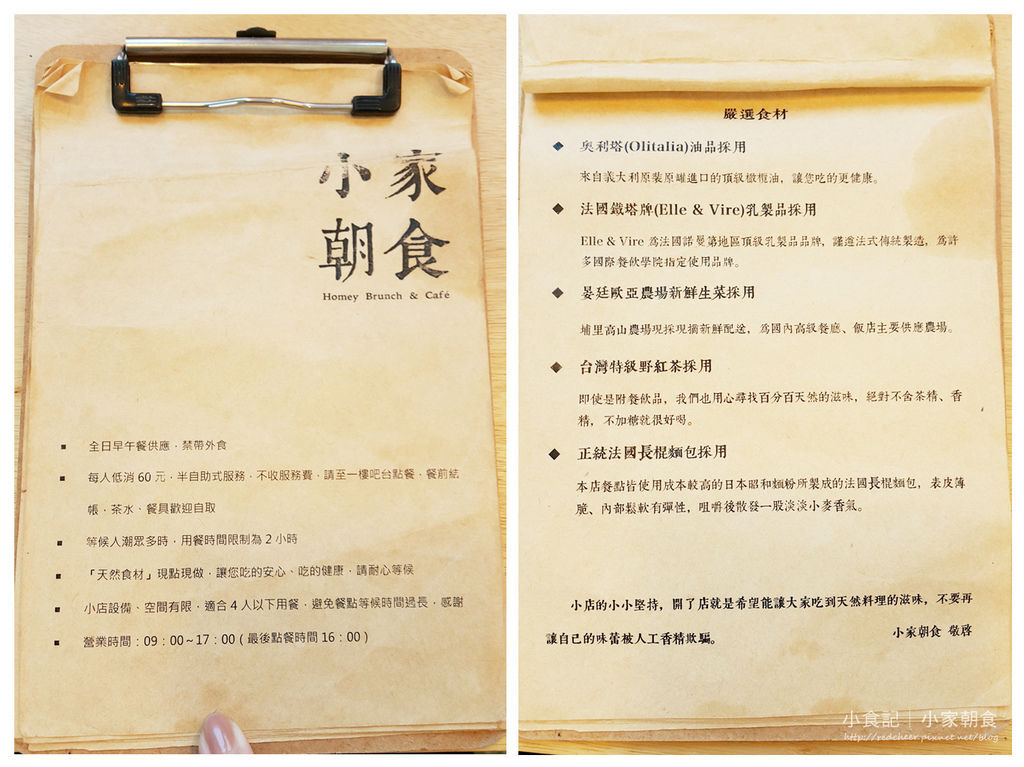 小家
朝食
Homey Brunch & Café
▪ 全日早午餐供應．禁帶外食
▪ 每人低消 60 元．半自助式服務．不收服務費．請至一樓吧台點餐、餐前結
帳．茶水、餐具歡迎自取
▪ 等候人潮眾多時，用餐時間限制為 2 小時
▪ 「天然食材」現點現做．讓您吃的安心、吃的健康．請耐心等候
▪ 小店設備、空間有限．適合 4 人以下用餐．避免餐點等候時間過長．感謝
▪ 營業時間：09：00~17：00 ( 最後點餐時間 16：00 )
嚴選食材
◆ 奧利塔(Olitalia)油品採用
來自義大利原裝原罐進口的頂級橄欖油，讓您吃的更健康。
◆ 法國鐵塔牌(Elle & Vire)乳製品採用
Elle & Vire 為法國諾曼第地區頂級乳製品品牌，謹遵法式傳統製造，為許
多國際餐飲學院指定使用品牌。
◆ 晏廷歐亞農場新鮮生菜採用
埔里高山農場現採現摘新鮮配送，為國內高級餐廳、飯店主要供應農場。
◆ 台灣特級野紅茶採用
即使是附餐飲品，我們也用心尋找百分百天然的滋味，絕對不含茶精、香
精，不加糖就很好喝。
◆ 正統法國長棍麵包採用
本店餐點皆使用成本較高的日本昭和麵粉所製成的法國長棍麵包，表皮薄
脆、內部鬆軟有彈性，咀嚼後散發一股淡淡小麥香氣。
小店的小小堅持，開了店就是希望能讓大家吃到天然料理的滋味，不要再
讓自己的味蕾被人工香精欺騙。
小家朝食 敬啓
小食記｜小家朝食
http://redcheer.pixnet.net/blog